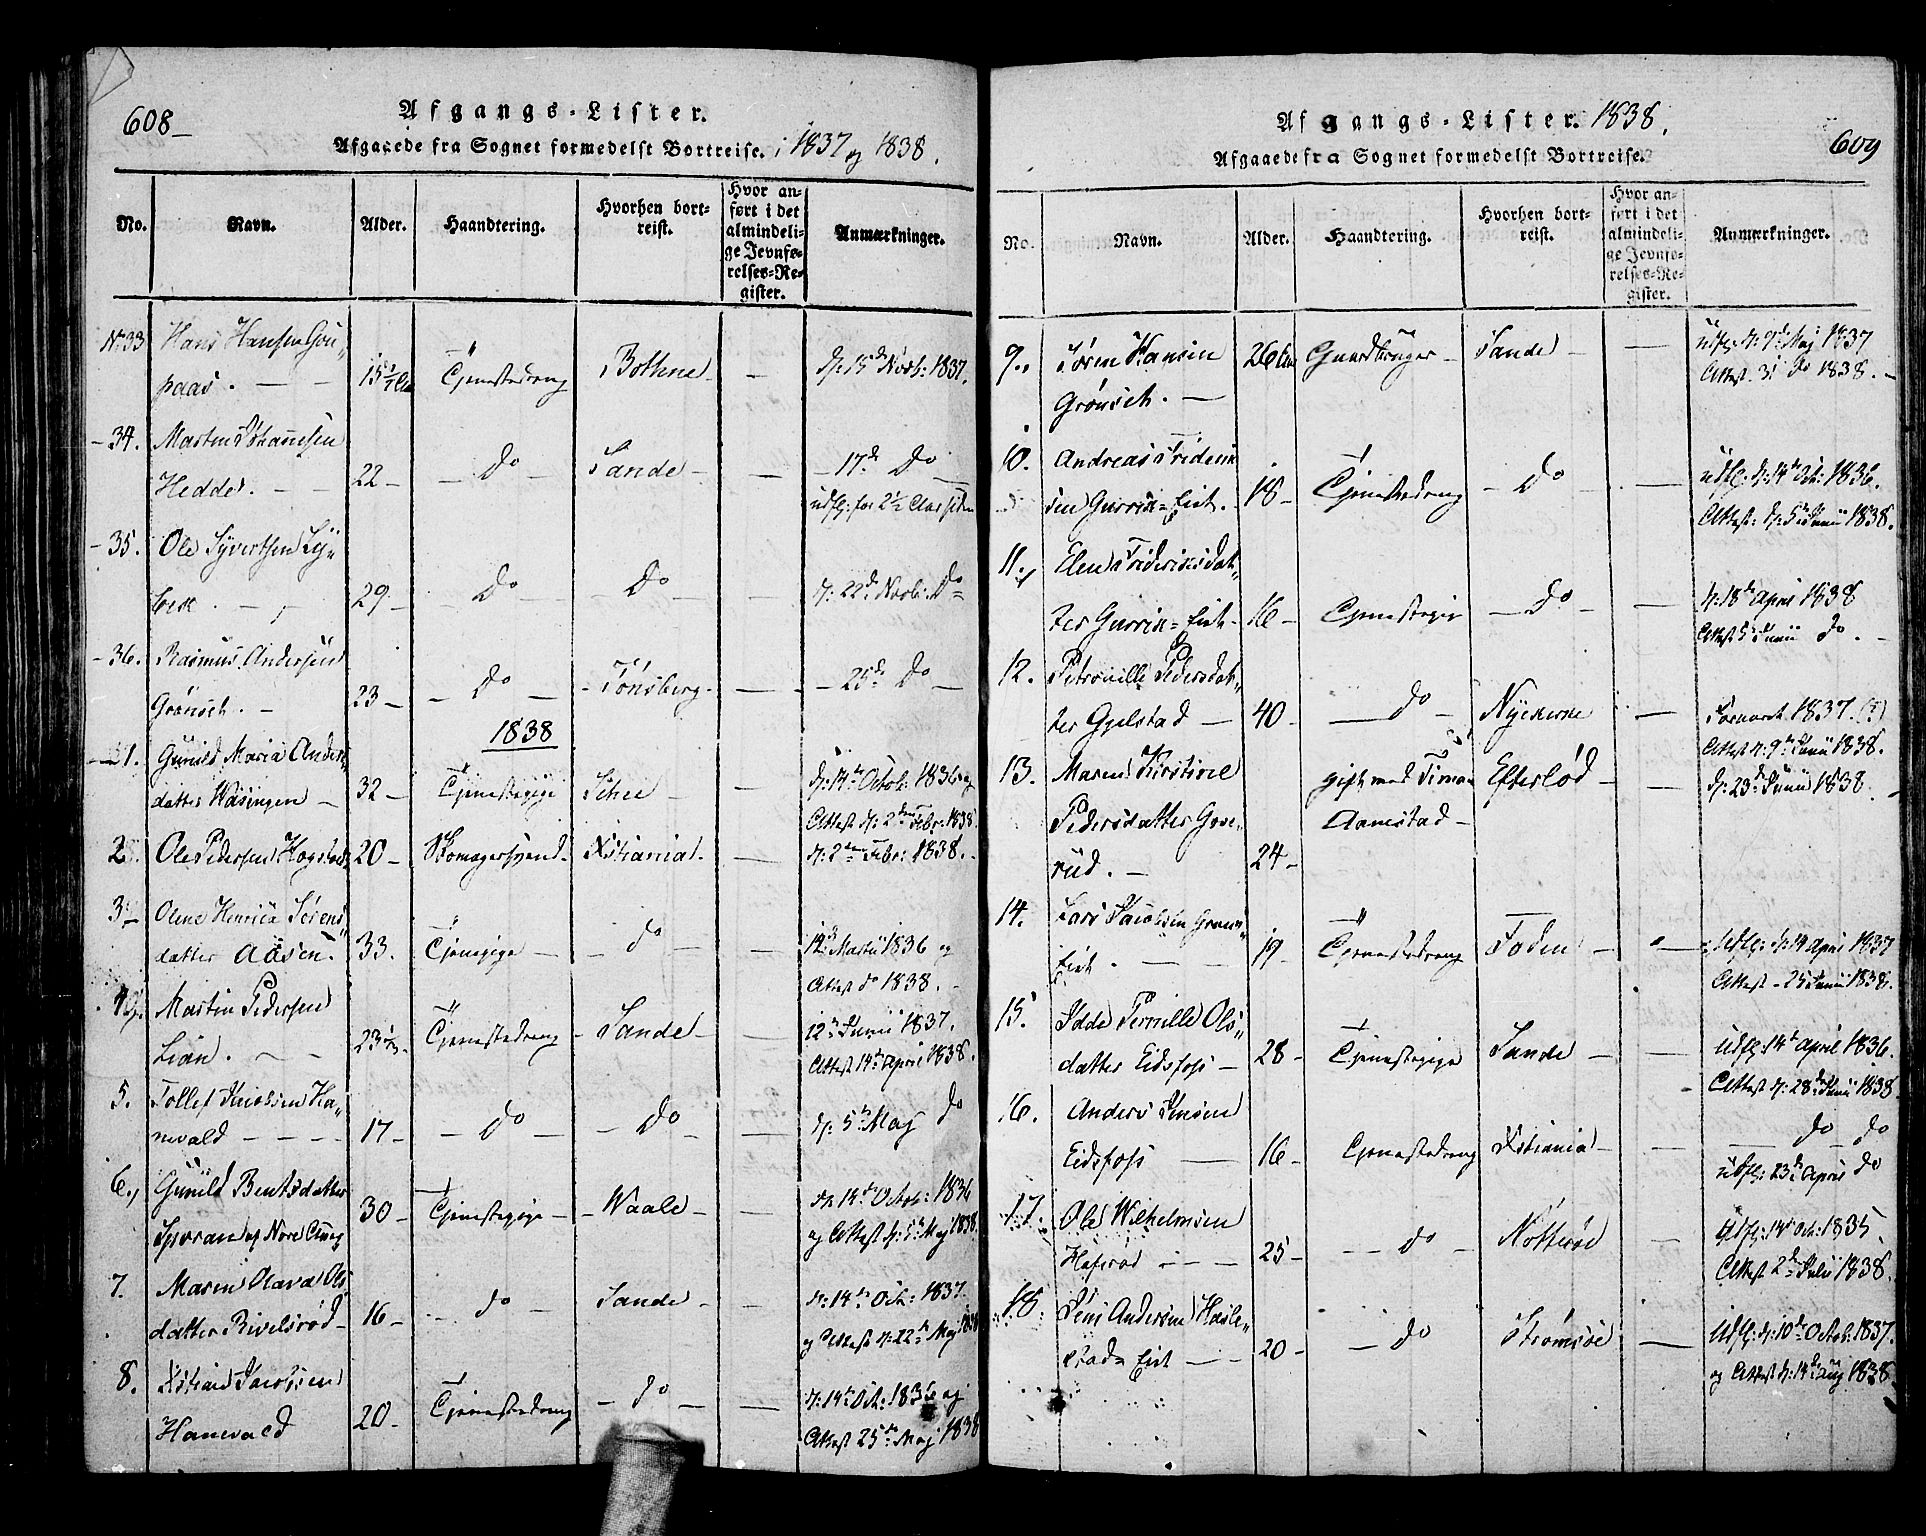 608
Afgangs-Lister.
Afgaaede fra Sognet formedelst Bortreise. i 1837 og 1838.
No. Navn. Alder. Haandtering. Hvorhen bort-
reist.
Hvor an-
ført i det
almindeli-
ge Jevnfø-
relses-Re-
gister.
Anmærkninger.
No 33 Hans Hansen Gou-
paas. 15 Tjenestedreng Bothne - d: 15de Novb: 1837.
34. Martin Johannsen
Hedder. 22 - do - Sande - 17de do
udfl: for 2½ Aar siden
35. Ole Syvertsen
29 - do - do d: 22de Novb: do
36. Rasmus Andersen
Grönset. 23 - do - Tönsberg - 25de do
1838
1. Gunild Maria Anders-
datter Wasingen 32 - Tjenestepige d: 14de Octob: 1836 og
Attest d: 2den Febr: 1838.
2. Ole Pedersen Hogstad 20 - Skomagersvend Xstiania - d: 2den Febr: 1838.
3. Olene Henrica Sörens-
datter Aasen. 33. Tjenepige - do - 12 Martii 1836 og
Attest do 1838.
4. Martin Pedersen
Lian. 23½ Tjenestedreng Sande - 12 Junii 1837.
Attest 14de April 1838.
5. Tollef Jacobsen Ha-
nevald 17 - do - do - d: 5te Maj do
6. Gunild Bentsdatter
af Nore 30 - Tjenestepige - Waale - d: 14de Octob: 1836
og Attest d: 5te Maj 1838.
7. Maren Olava Ols-
datter Rivelsröd 16 - do - Sande - d: 14de Oct: 1837.
og Attest d: 22de Maj 1838
8. Xstian Jacobsen
Hanevald 20 - Tjenestedreng - do - d: 14de Oct: 1836 og
Attest 25de Maj 1838
Afgangs-Lister. 1838.
609
Afgaaede fra Sognet formedelst Bortreise.
No. Navn. Alder. Haandtering. Hvorhen bort-
reist.
Hvor an-
ført i det
almindeli-
ge Jevnfø-
relses-Re-
gister.
Anmærkninger.
9. Sören Hansen
Grönset. 26 Gaardbruger - Sande - udfl: d: 9de Maj 1837
Attest. 31 do 1838.
10. Andreas Friderik-
sen Gurrin-Eiet. 18 - Tjenestedreng - do - udfl: d: 14de Oct: 1836.
Attest: d: 5te Junii 1838.
11. Elen Frideriksdat-
ter Gurrin-Eiet 16 - Tjenestepige - do - d: 18de April 1838
Attest 5te Junii do.
12. Petronille Pedersdat-
ter Gjelstad 40 - do - Nykirke - 1837. (?)
Attest d: 9de Junii 1838.
13. Maren Kirstine
Pedersdatter Gove-
rud. 24 - gift med Simon
Aamestad - Efteröd - d: 23de Junii 1838.
14. Lars Jacobsen
Eiet. 19 - Tjenestedreng Foden - Udfl: d: 14 April 1837
Attest - 25 Junii 1838.
15. Idde Pernille Ols-
datter Eidsfoss 28 - Tjenestepige Sande - Udfl: 14de April 1836.
Attest d: 28de Junii 1838
16. Anders Jensen
Eidsfoss 16 - Tjenestedreng Xstiania - do do
udfl: 23de April do
17. Ole Wilhelmsen
25 - do - Nötteröe - Udfl: 14de Oct: 1835.
Attest 2den Julii 1838.
18. Jens Andersen Hasle-
Eiet 20 - do - Strömsöe - Udfl: d: 10de Octob: 1837.
og Attest d: 14de Aug 1838